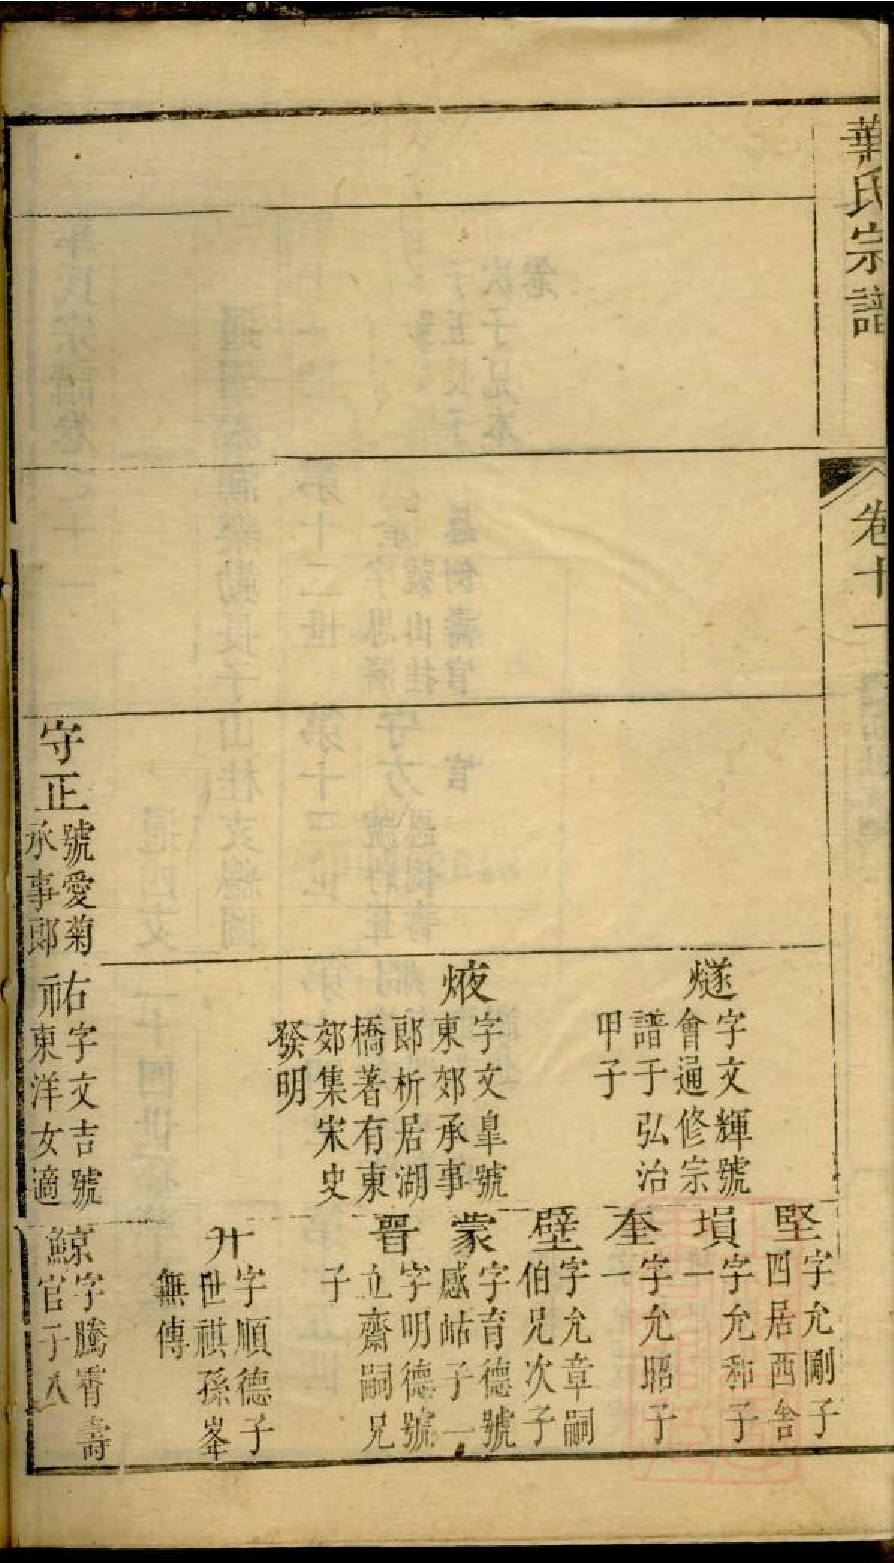 華氏宗譜
卷十一
燧
字文輝號
會通修宗
譜于弘治
甲子
焲
字文臯號
東郊承事
郎析居湖
橋著有東
郊集宋史
發明
守正
號愛菊
承事郎
祐
字文吉號
東洋女適
堅
字允剛子
四居西舍
塤
字允和子
一
奎
字允昭子
一
壁
字允章嗣
伯兄次子
蒙
字育德號
感岵子一
晋
字明德號
立齋嗣兄
子
升
字順德子
世祺孫峯
無傳
鯨
字騰霄壽
官子八